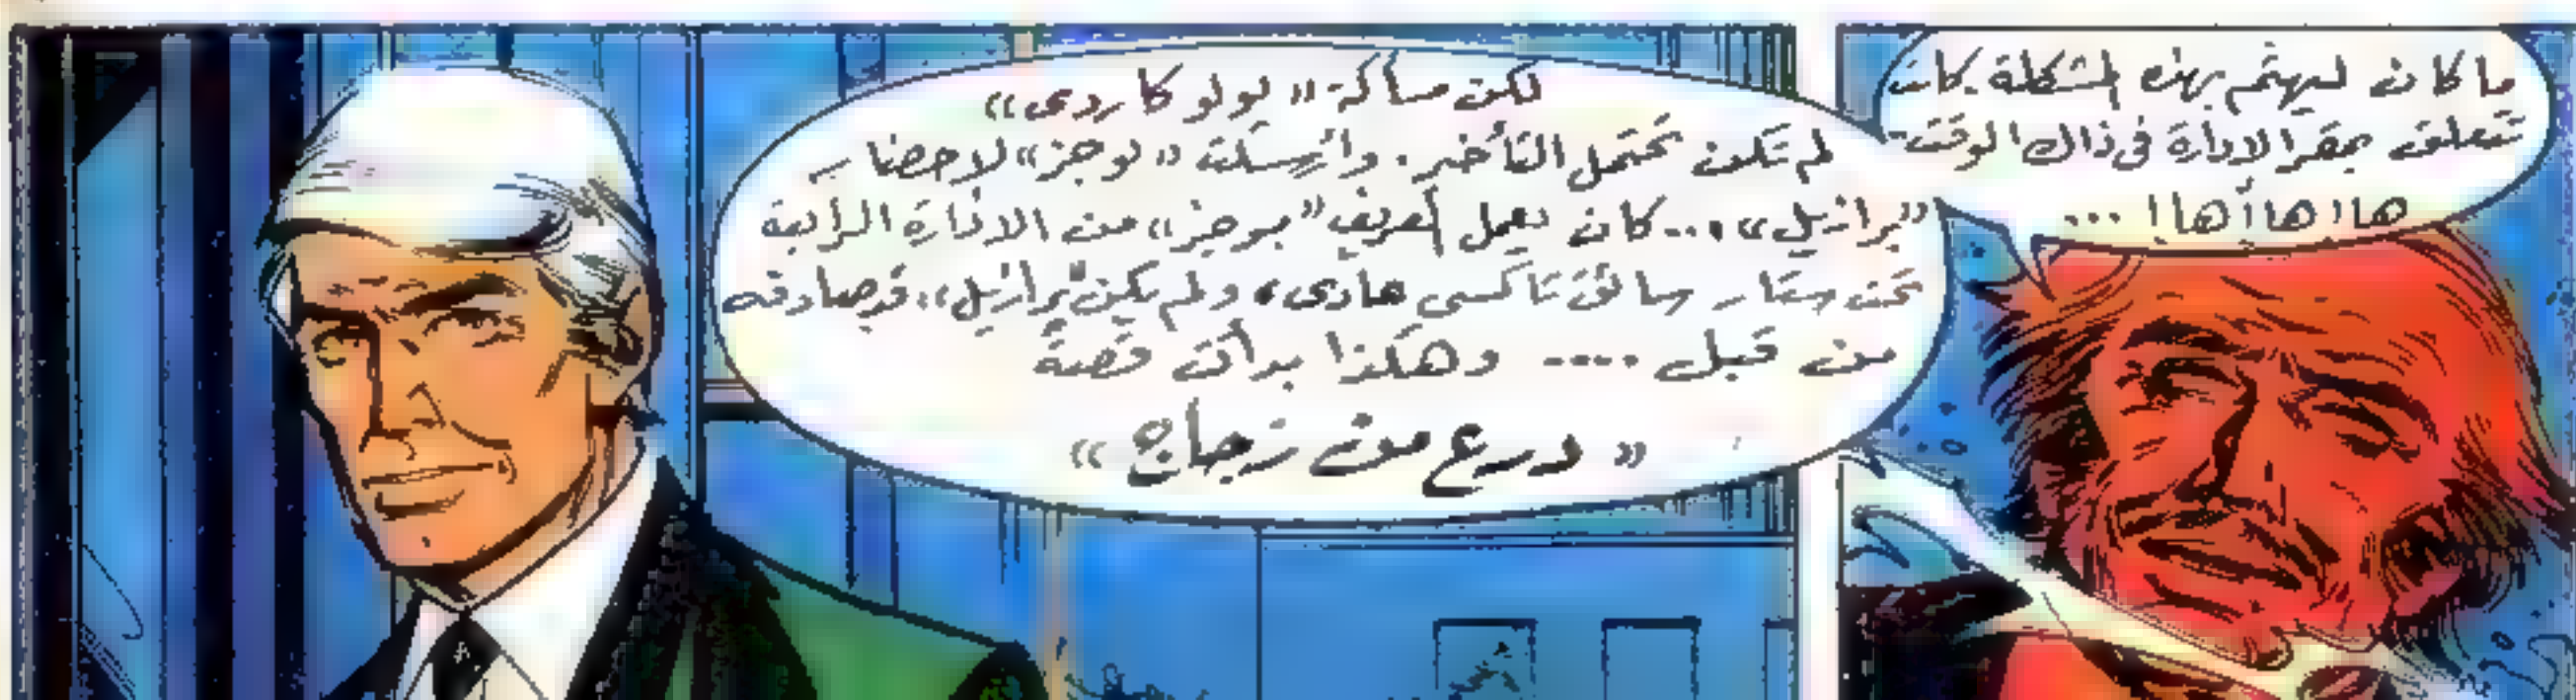 ما كان ليهتم بهذه المشكلة. كانت
تتعلق بمقر الادارة في ذاك الوقت
ها! ها! ها! ...
لكن مسألة «لولو كاردي»
لم تكن تحتمل التأخير. وأرسلت «لوجز» لإحضار
«برازيل»... كان يعمل العريف «بوجيز» من الادارة الرابعة
تحت ستار سائق تاكسي عادي، ولم يكن «برازيل» قد صادفه
من قبل .... وهكذا بدأت قصة
« درع من زجاج »